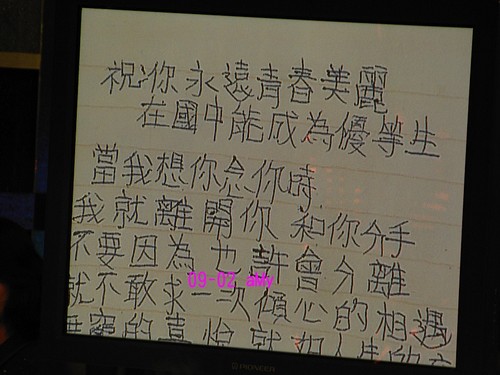 祝你永遠青春美麗
在國中能成為優等生
當我想你念你時
我就離開你 和你分手
不要因為也許會分離
就不敢求一次傾心的相遇
09-02 aMy
無窮的喜悅就如人生的
PIONEER